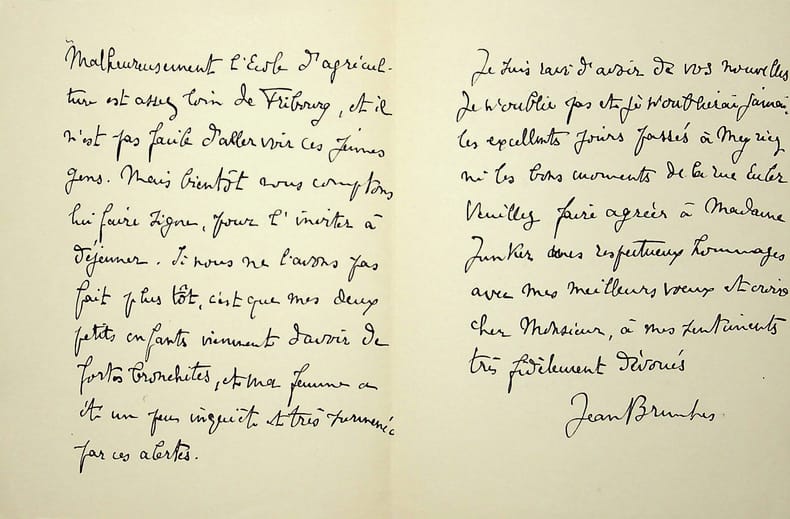 Malheureusement l'Ecole d'agricul-
ture est assez loin de Fribourg, et il
n'est pas facile d'aller voir ces jeunes
gens. Mais bientôt nous comptons
lui faire signe, pour l'inviter à
déjeuner. Si nous ne l'avons pas
fait plus tôt, c'est que mes deux
petits enfants viennent d'avoir de
fortes bronchites, et ma femme a
été un peu inquiète et très surmenée
par ces alertes.
Je suis ravi d'avoir de vos nouvelles
Je n'oublie pas et je n'oublierai jamais
les excellents jours passés à Meyriez
ni les bons moments de la rue Euler
Veuillez faire agréer à Madame
Junker mes respectueux hommages
avec mes meilleurs voeux et croire
cher Monsieur, à mes sentiments
très fidèlement dévoués
Jean Brunhes.